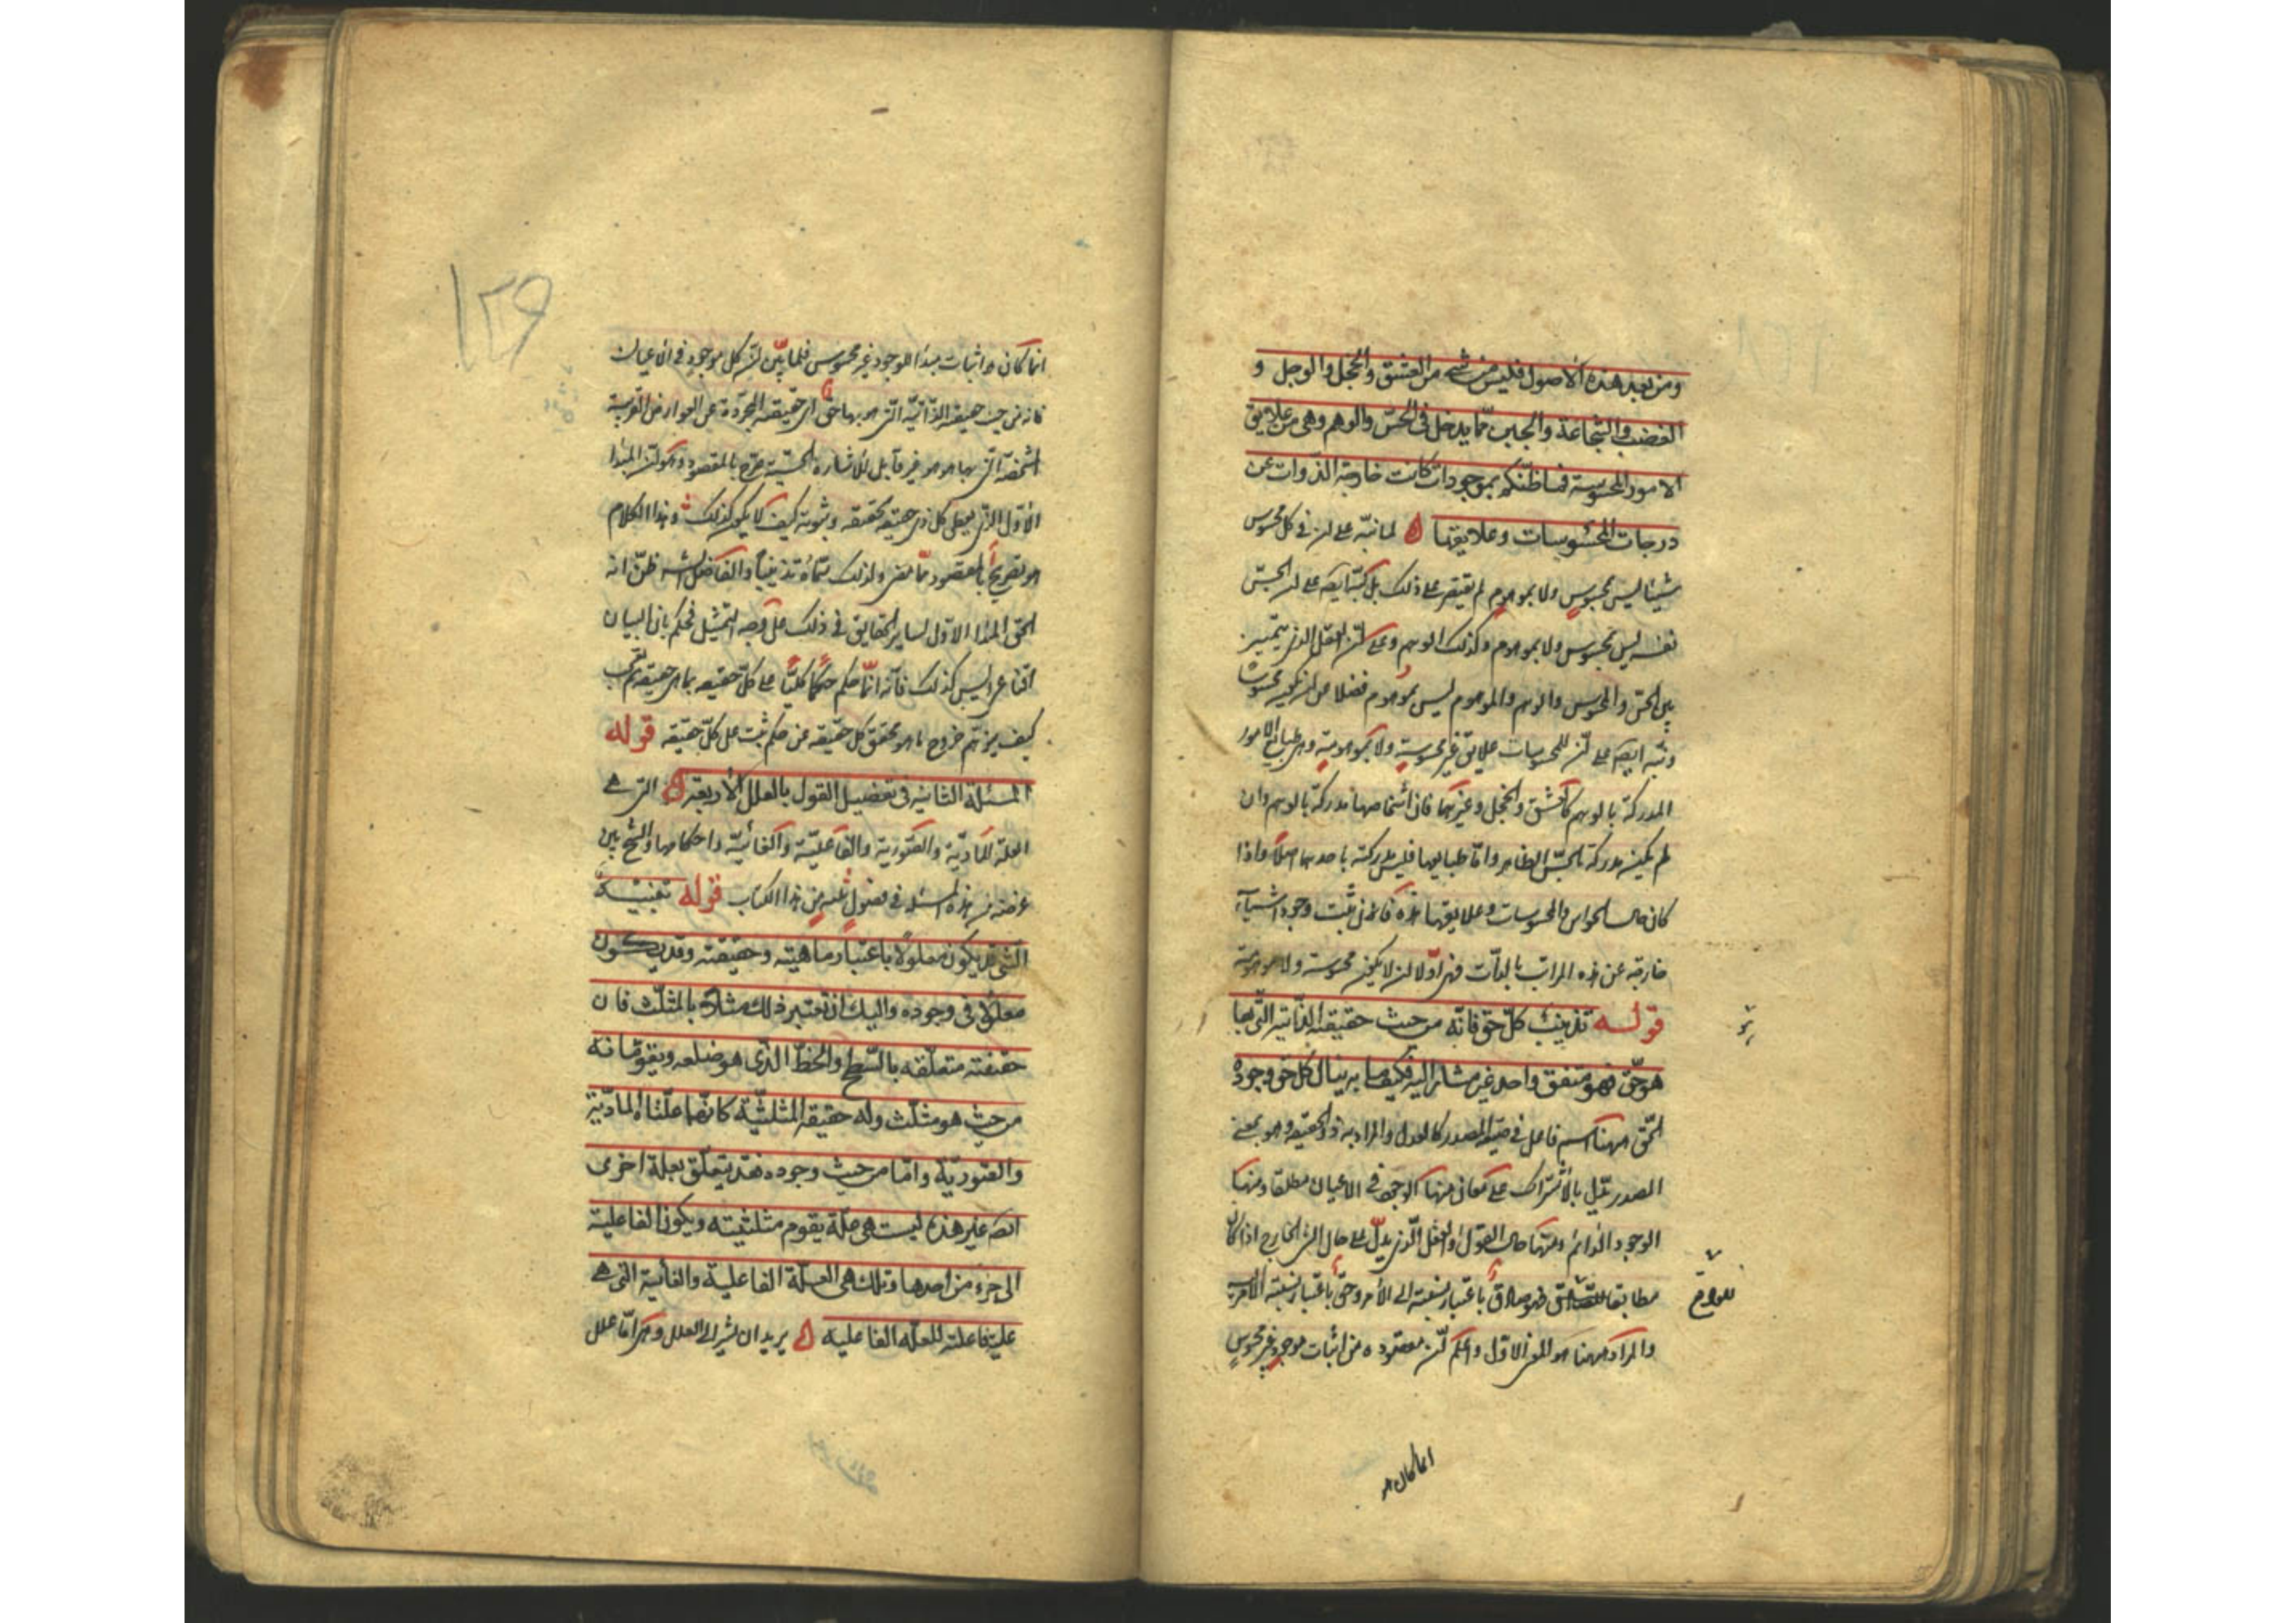 ومن بعد هذه الأصول فليس شيء من العشق والخجل والوجل و
الغضب والشجاعة والجبن مما يدخل فى الحس والوهم وهى من علايق
الامور المحسوسة فما ظنكم بموجودات كانت خارجة الذوات عن
درجات المحسوسات وعلايقها لما نبه على ان فى كل محسوس
شيئا ليس بمحسوس ولا بموهوم لم يقتصر على ذلك بل نبه ايضا على ان الحس
نفسه ليس بمحسوس ولا بموهوم وكذلك الوهم وعلى ان العقل الذى يتميز
بين الحس والمحسوس والوهم والموهوم ليس بموهوم فضلا عن ان يكون محسوسا
ونبه ايضا على ان للمحسوسات علايق غير محسوسة ولا بموهومة وهى طبايع الامور
المدركة بالوهم كالعشق والخجل وغيرهما فان أشخاصها مدركة بالوهم وان
لم يكن مدركة بالحس الظاهر واما طبايعها فليس مدركة باحدهما اصلا واذا
كان حال الحواس والمحسوسات وعلايقها هذه فان ثبت وجود اشياء
خارجة عن هذه المراتب بالذات فهى اولا ان لا يكون محسوسة ولا موهومة
قوله تذنيب كل حق فانه من حيث حقيقته الذاتية التى بها
هو حق فهو متفق واحد غير مشار اليه فكيف ما به ينال كل حق وجوده
الحق ههنا اسم فاعل فى صيغة المصدر كالعدل والمراد به ذو الحقيقة وهو بمعنى
المصدر يقال بالاشتراك على معانى منها الوجود فى الاعيان مطلقا ومنها
الوجود الدائم ومنها حال القول او العقل الذى يدل على حال الشىء الخارج اذا كان
مطابقا فهو صادق باعتبار نسبته الى الأمر وحق باعتبار نسبة الأمر اليه
للواقع
والمراد ههنا هو المعنى الاول واعلم ان مقصوده من اثبات موجود غير محسوس
انما كان
١٢٩
انما كان اثبات مبدأ للوجود غير محسوس فلما بين ان كل موجود فى الاعيان
فانه من حيث حقيقته الذاتية التى هو بها حق اى حقيقته المجردة عن العوارض الغريبة
المشخصة التى بها هو هو غير قابل للاشارة الحسية صرح بالمقصود وهو ان المبدأ
الأول الذى يعطى كل ذى حقيقة تحققه وثبوته كيف لا يكون كذلك وهذا الكلام
هو تصريح بالمقصود مما مضى ولذلك سماه تذنيبا والفاضل الشارح ظن انه
الحق المبدأ الاول لساير الحقايق فى ذلك على وجه التمثيل فحكم بان البيان
اقناعى وليس كذلك فانه انما حكم حكما كليا على كل حقيقة بما هى حقيقة
كيف يتوهم خروج ما هو محقق كل حقيقة عن حكم ثبت على كل حقيقة قوله
المسئلة الثانية فى تفصيل القول بالعلل الأربعة التى هى
العلة المادية والصورية والفاعلية والغائية واحكامها والشيخ بين
غرضه من هذه المسئلة فى فصول ثلثة من هذا الكتاب قوله تنبيه
الشى قد يكون معلولا باعتبار ماهيته وحقيقته وقد يكون
معلولا فى وجوده واليك ان تعتبر ذلك مثلا بالمثلث فان
حقيقته متعلقه بالسطح والخط الذى هو ضلعه ويقومانه
من حيث هو مثلث وله حقيقة المثلثية كانهما علتاه المادية
والصورية واما من حيث وجوده فقد يتعلق بعلة اخرى
ايضا غير هذه ليست هى علة يقوم مثلثيته ويكون
الى جزء من احدها وتلك هى العلة الفاعلية والغائية التى هى
علة فاعلة للعلة الفاعلية يريد ان يشير الى العلل وهى اما علل